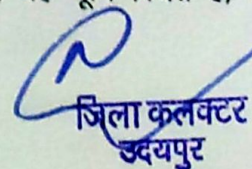 जिला कलक्टर
उदयपुर